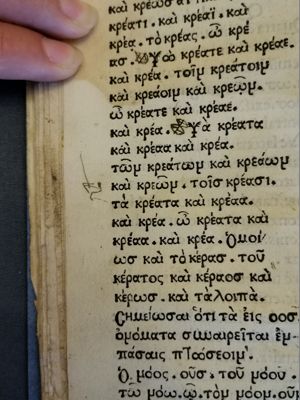 καὶ κρέωσ
κρέατι. καὶ κρέαϊ. καὶ
κρέα. τὸ κρέας. ὦ κρέ
ασ. Τὼ κρέατε καὶ κρέαε.
καὶ κρέα. τοῖν κρεάτοιν
καὶ κρεάοιν καὶ κρεῶν.
ὦ κρέατε καὶ κρέαε.
καὶ κρέα. Τὰ κρέατα
καὶ κρέαα καὶ κρέα.
τῶν κρεάτων καὶ κρεάων
καὶ κρεῶν. τοῖσ κρέασι.
τὰ κρέατα καὶ κρέαα.
καὶ κρέα. ὦ κρέατα καὶ
κρέαα. καὶ κρέα. Ὁμοί
ωσ καὶ τὸ κέρασ. τοῦ
κέρατος καὶ κέραοσ καὶ
κέρωσ. καὶ τὰ λοιπὰ.
Σημείωσαι ὅτι τὰ εἰς οοσ
ὀνόματα συναιρεῖται ἐν
πάσαις πτώσεσιν.
Ὁ νόος. οῦσ, τοῦ νόου.
τῶ νόω. ῶ. τὸν νόον.